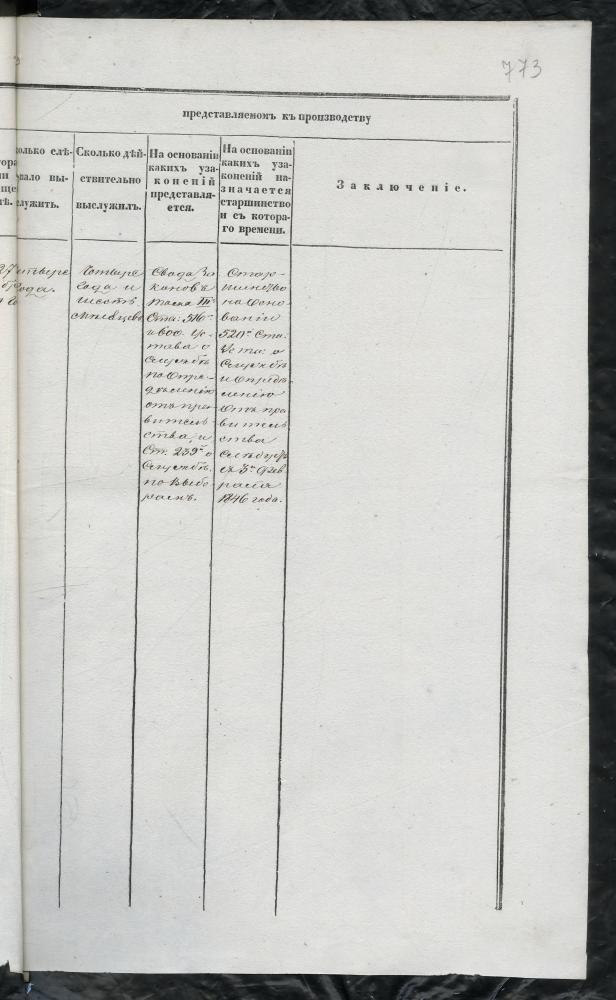 773
представляемомъ къ производству
колько слѣ-
вало вы-
служить.
Сколько дѣй-
ствительно
выслужилъ.
На основаніи
какихъ уза-
коненій
представля-
ется.
На основаніи
какихъ уза-
коненій на-
значается
старшинство
и съ котора-
го времени.
Заключеніе.
четыре
года.
Четыре
года и
шесть
мѣсяцевъ
Свода За
коновъ
тома III го
Ста: 516
и 600. Ус-
тава о
Службѣ
по Опре-
дѣленію
отъ пра-
витель-
ства, и
Ст. 239 о
Службѣ
по Выбо-
рамъ.
Стар-
шинство
на Осно-
ваніи
520 Ста:
Уста: о
Службѣ
по Опредѣ-
ленію
Отъ пра
витель-
ства
слѣдуетъ
съ 3 Фев
раля
1846 года.